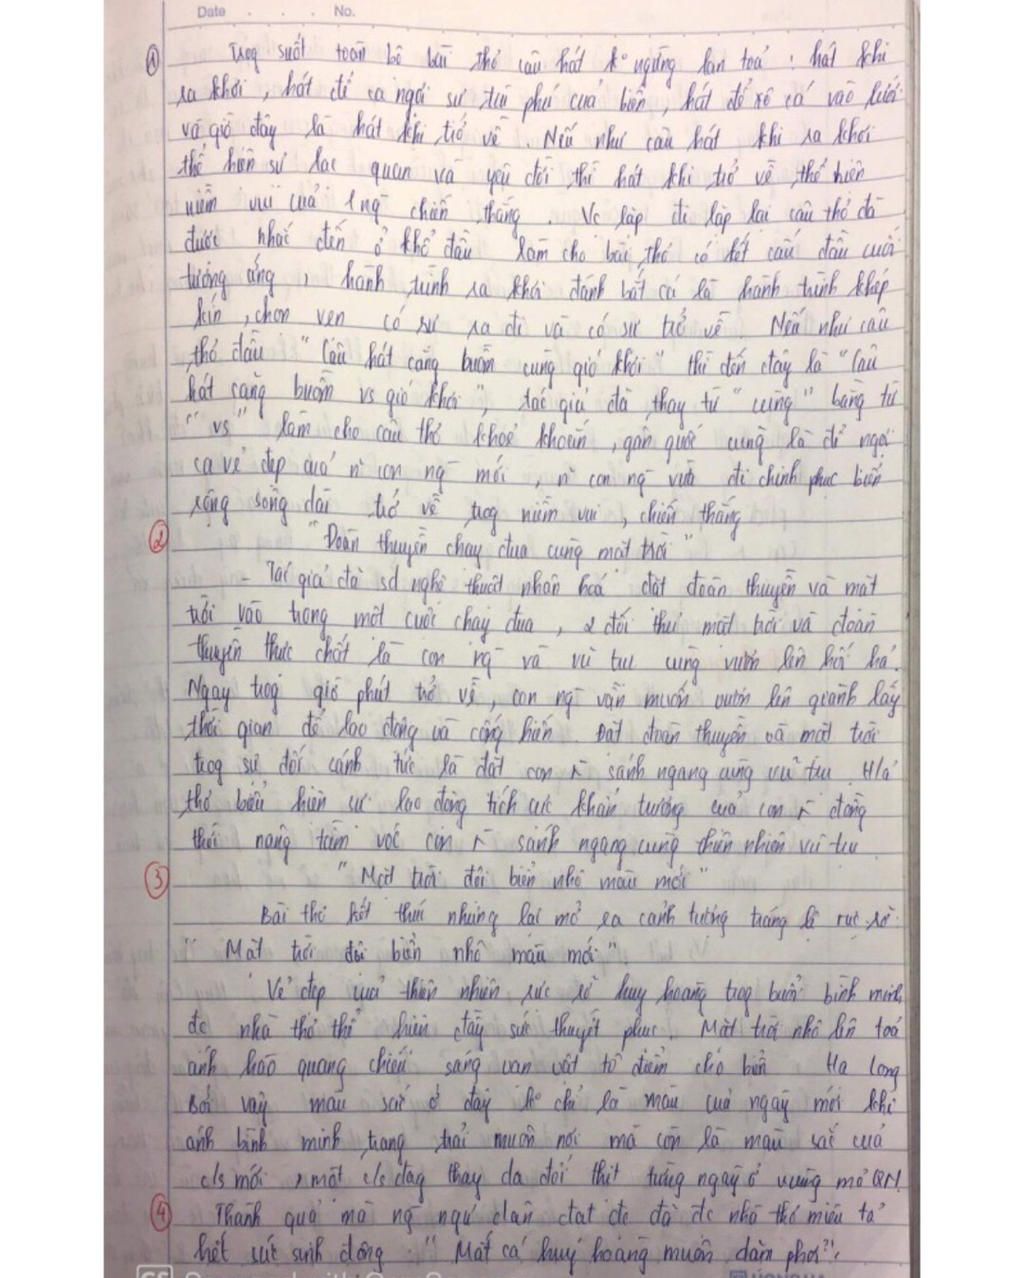 Date No.
① Trog suốt toàn bộ bài thơ câu hát ko ngừng lan toả : hát khi
ra khơi, hát để ca ngợi sự trù phú của biển, hát để kéo cá vào lưới
và giờ đây là hát khi trở về. Nếu như câu hát khi ra khơi
thể hiện sự lạc quan và yêu đời thì hát khi trở về thể hiện
niềm vui của 1 ng chiến thắng. Vc lặp đi lặp lại câu thơ đã
được nhắc đến ở khổ đầu làm cho bài thơ có kết cấu đầu cuối
tương ứng, hành trình ra khơi đánh bắt cá là hành trình khép
kín, chọn vẹn có sự ra đi và có sự trở về. Nếu như câu
thơ đầu "Câu hát căng buồm cùng gió khơi" thì đến đây là "Câu
hát căng buồm vs gió khơi", tác giả đã thay từ "cùng" bằng từ
"vs" làm cho câu thơ khoẻ khoắn, gân guốc cũng là để ngợi
ca vẻ đẹp của n~ con ng mới, n~ con ng vừa đi chinh phục biển
rộng sông dài trở về trog niềm vui, chiến thắng
② "Đoàn thuyền chạy đua cùng mặt trời"
- Tác giả đã sd nghệ thuật nhân hoá đặt đoàn thuyền và mặt
trời vào trong một cuộc chạy đua, 2 đối thủ mặt trời và đoàn
thuyền thực chất là con ng và vũ trụ cùng vươn lên hối hả.
Ngay trog giờ phút trở về, con ng vẫn muốn vươn lên giành lấy
thời gian để lao động và cống hiến. Đặt đoàn thuyền và mặt trời
trog sự đối sánh tức là đặt con sánh ngang cùng vũ trụ. H/ả
thơ biểu hiện sự lao động tích cực khẩn trương của con đồng
thời nâng tầm vóc con sánh ngang cùng thiên nhiên vũ trụ.
③ "Mặt trời đội biển nhô màu mới"
Bài thơ kết thúc nhưng lại mở ra cảnh tượng tráng lệ rực rỡ
"Mặt trời đội biển nhô màu mới"
Vẻ đẹp của thiên nhiên rực rỡ huy hoàng trog buổi bình minh,
đc nhà thơ thể hiện đầy sức thuyết phục. Mặt trời nhô lên toả
ánh hào quang chiếu sáng vạn vật tô điểm cho biển Hạ Long
Bởi vậy màu sắc ở đây ko chỉ là màu của ngày mới khi
ánh bình minh trang trải muôn nơi mà còn là màu sắc của
c/s mới, một c/s đag thay da đổi thịt từng ngày ở vùng mỏ QN.
④ Thành quả mà ng ngư dân đạt đc đã đc nhà thơ miêu tả
hết sức sinh động "Mắt cá huy hoàng muôn dặm phơi".